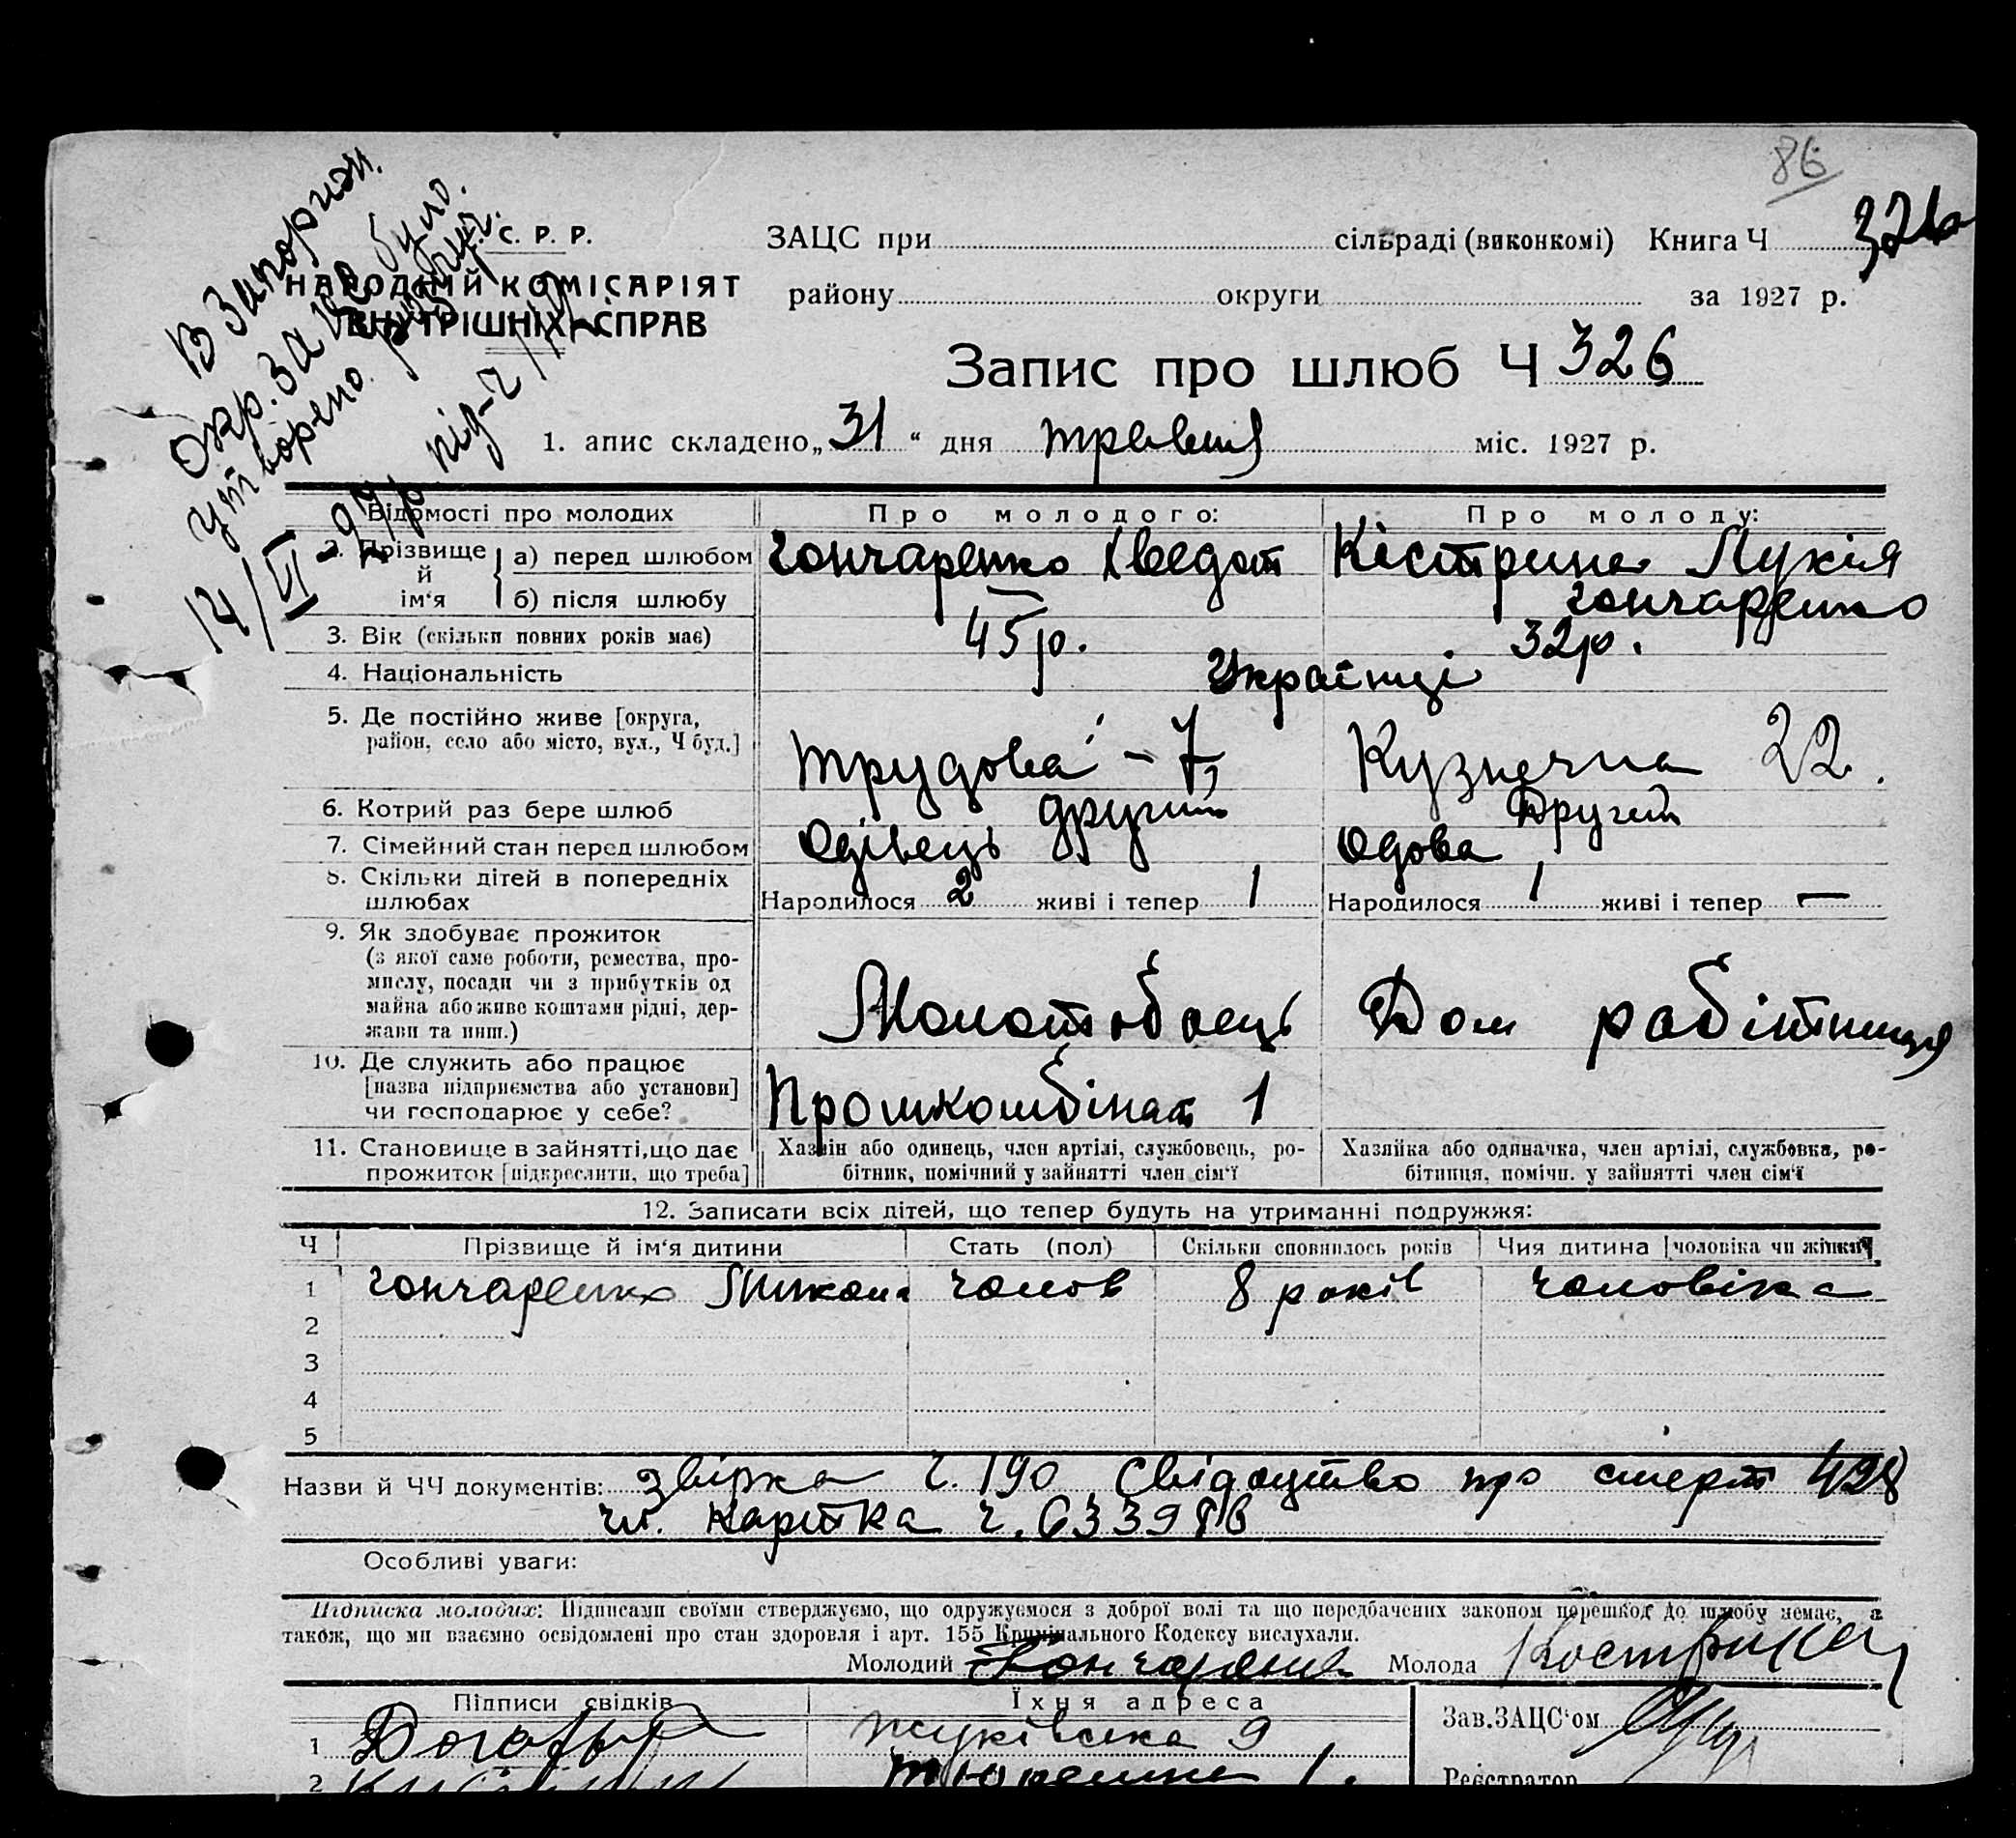 86
326
В Запориж.
Окр. ЗАЦСі було
утворено розлуч.
14/VI-
С. Р. Р.
НАРОДНІЙ КОМІСАРІЯТ
ВНУТРІШНІХ СПРАВ
ЗАЦС при сільраді (виконкомі) Книга Ч
району округи за 1927 р.
Запис про шлюб Ч 326
1. апис складено „31“ дня травня міс. 1927 р.
Відомості про молодих Про молодого: Про молоду:
2. Прізвище й ім‘я
а) перед шлюбом Гончаренко Кістрина Лукія
б) після шлюбу — Гончаренко
3. Вік (скільки повних років має) 45 р. 32 р.
4. Національність Українці
5. Де постійно живе [округа,
район, село або місто, вул., Ч буд.] Трудова - 7 Кузнечна 22.
6. Котрий раз бере шлюб другий Другий
7. Сімейний стан перед шлюбом Одівець Одова
8. Скільки дітей в попередніх
шлюбах Народилося 2 живі і тепер 1 Народилося 1 живі і тепер —
9. Як здобуває прожиток
(з якої саме роботи, ремества, про-
мислу, посади чи з прибутків од
майна або живе коштами рідні, дер-
жави та инш.) Молотобоець Дом робітниця
10. Де служить або працює
[назва підприємства або установи]
чи господарює у себе? Промкомбінат 1
11. Становище в зайнятті, що дає
прожиток [підкреслити, що треба]
Хазяїн або одинець, член артілі, службовець, ро-
бітник, помічний у зайнятті член сім‘ї
Хазяйка або одиначка, член артілі, службовка, ро-
бітниця, помічн. у зайнятті член сім‘ї
12. Записати всіх дітей, що тепер будуть на утриманні подружжя:
Ч Прізвище й ім‘я дитини Стать (пол) Скільки сповнилось років Чия дитина [чоловіка чи жінки]
1 Гончаренко Микола чолов 8 років чоловіка
2
3
4
5
Назви й ЧЧ документів: звірка ч. 190 Свідоцтво про смерт 428
чл. картка ч.
Особливі уваги:
Підписка молодих: Підписами своїми стверджуємо, що одружуємося з доброї волі та що передбачених законом перешкод до шлюбу немає, а
також, що ми взаємно освідомлені про стан здоровля і арт. 155 Кримінального Кодексу вислухали.
Молодий Гончаренко Молода
Підписи свідків Їхня адреса
Зав. ЗАЦС‘ом
1 Жуківська 9
2
Реєстратор